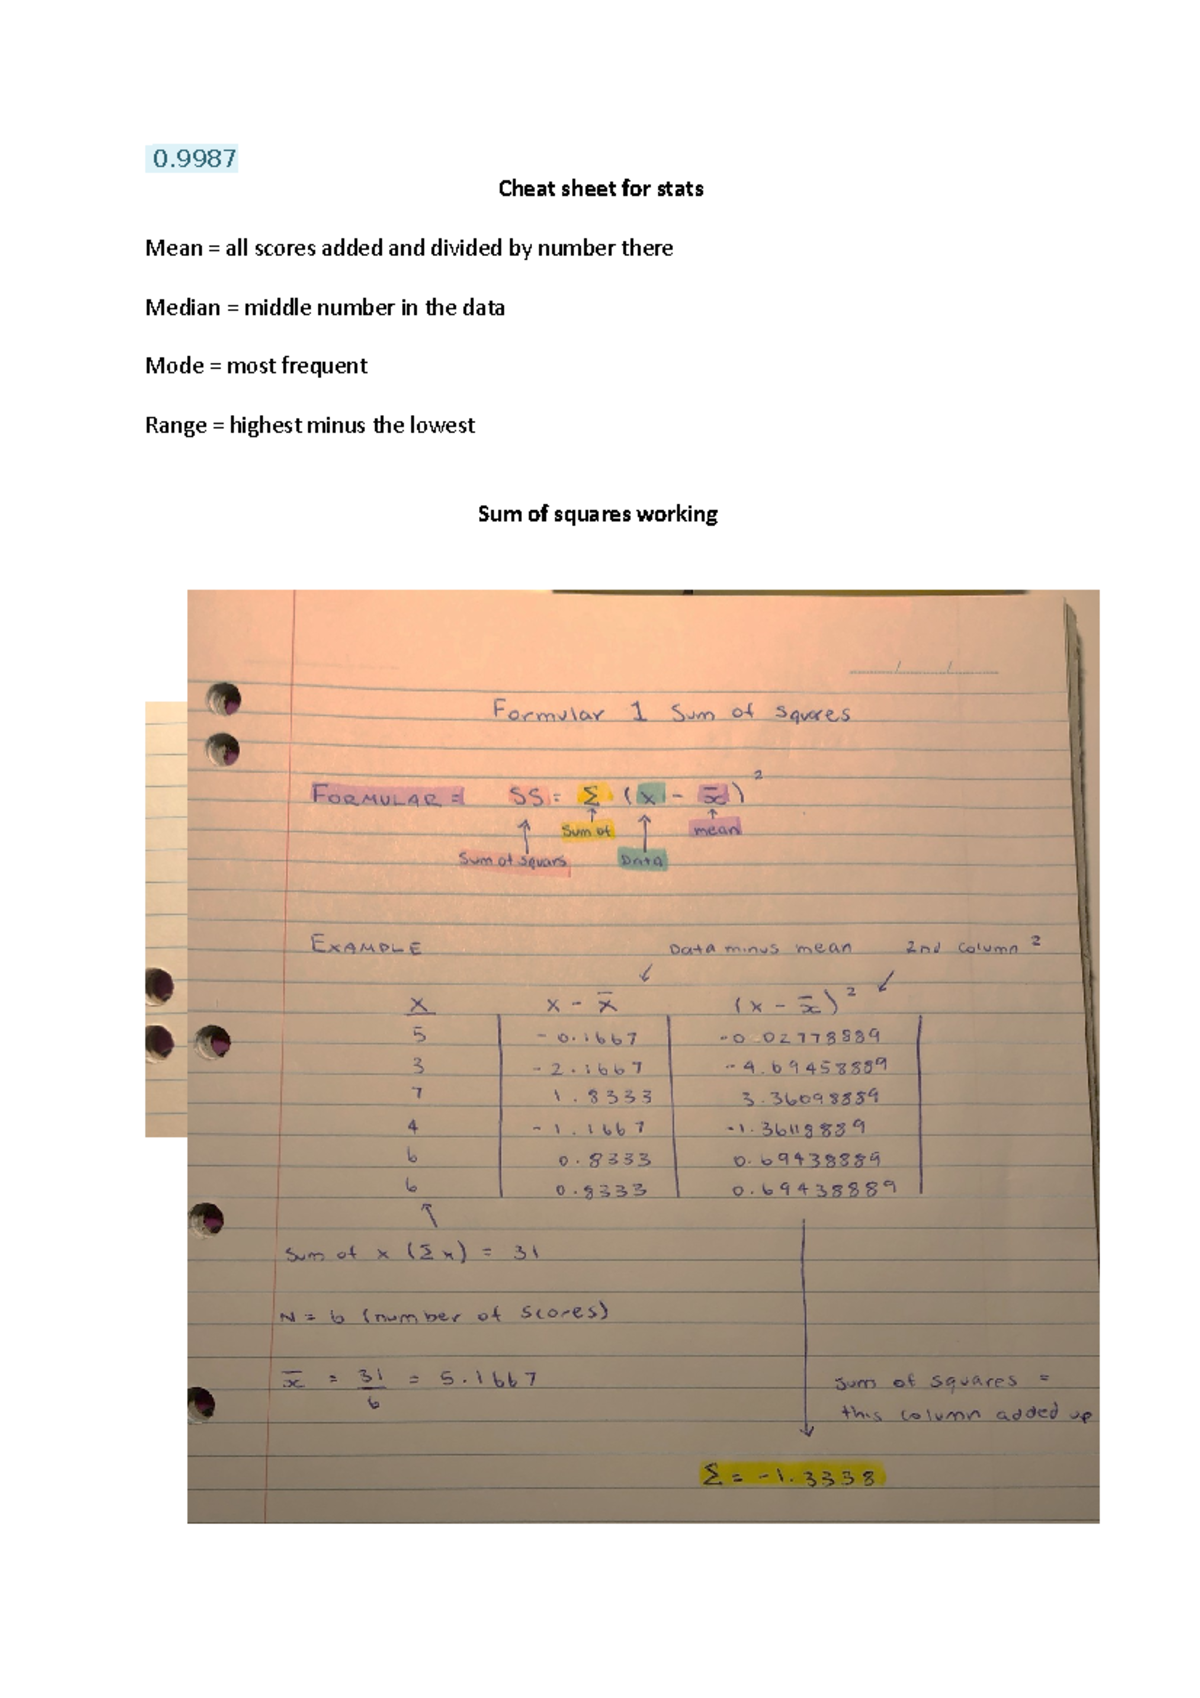 0.9987
Cheat sheet for stats
Mean = all scores added and divided by number there
Median = middle number in the data
Mode = most frequent
Range = highest minus the lowest
Sum of squares working
Formular 1 Sum of squares
FORMULAR = SS = Σ (x - x̄)²
Sum of mean
Sum of squars DATA
EXAMPLE Data minus mean 2nd column ²
X x - x̄ (x - x̄)²
5 -0.1667 -0.02778889
3 -2.1667 -4.69458889
7 1.8333 3.36098889
4 -1.1667 -1.36118889
6 0.8333 0.69438889
6 0.8333 0.69438889
Sum of x (Σx) = 31
N = 6 (number of scores)
x̄ = 31 = 5.1667
6
Sum of squares =
this column added up
Σ = -1.3338